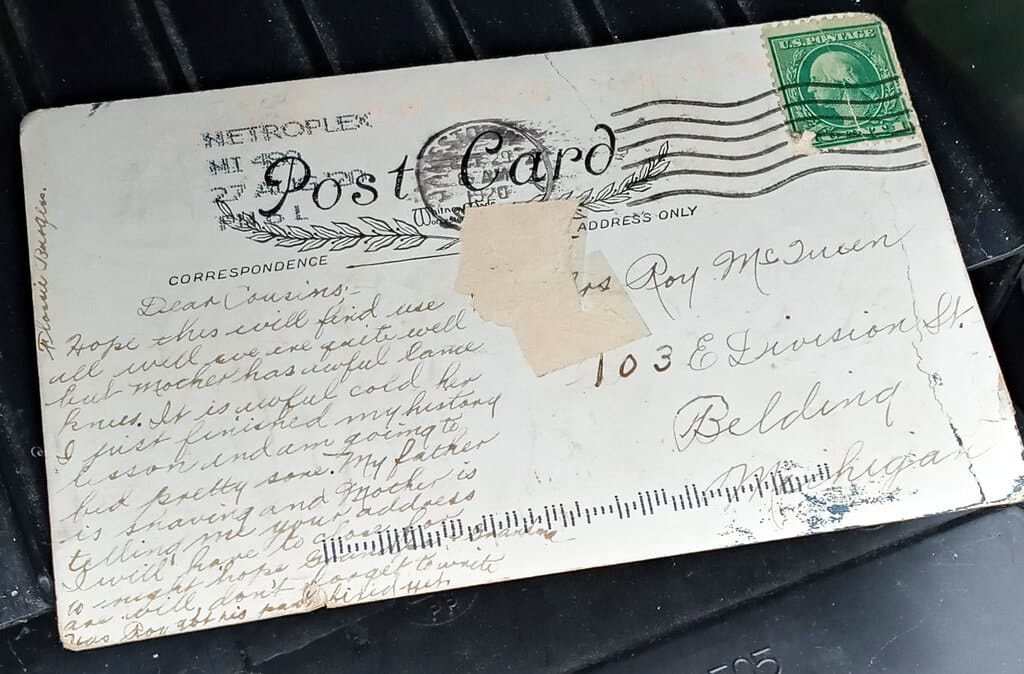 U.S. POSTAGE
METROPLEX
MI 480
27
Post Card
1920
CORRESPONDENCE
ADDRESS ONLY
Flossie
Dear Cousins:-
Hope this will find use
all well we are quite well
but Mother has awful lame
knees. It is awful cold her
I just finished my history
lesson and am going to
bed pretty sone. My father
is shaving and Mother is
telling me your address
I will have to close for
to night hope
are will don't forget to write
has Roy got his
Mrs Roy McQueen
103 E Division St.
Belding
Michigan